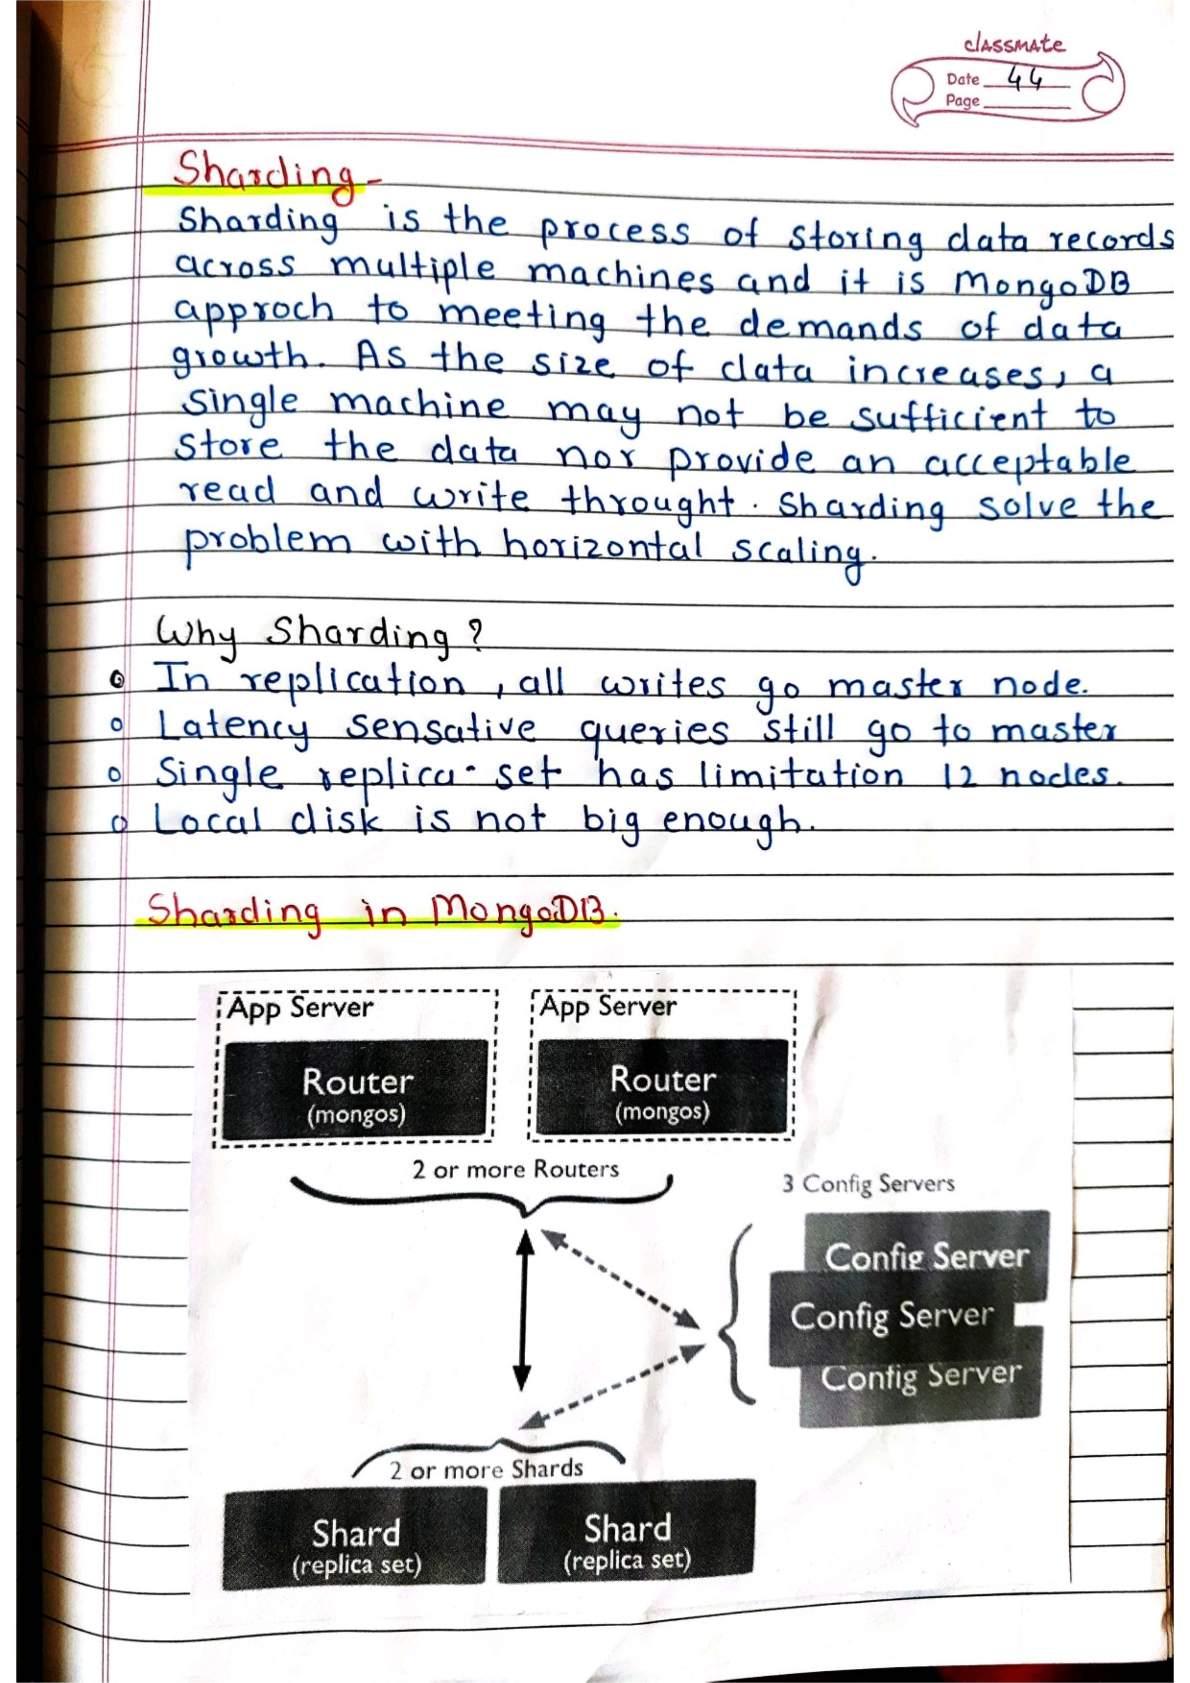 classmate
Date 44
Page
Sharding -
Sharding is the process of storing data records
across multiple machines and it is MongoDB
approch to meeting the demands of data
growth. As the size of data increases, a
single machine may not be sufficient to
store the data nor provide an acceptable
read and write throught. Sharding solve the
problem with horizontal scaling.
Why Sharding?
In replication, all writes go master node.
Latency sensative queries still go to master
Single replica-set has limitation 12 nodes.
Local disk is not big enough.
Sharding in MongoDB.
App Server
App Server
Router
(mongos)
Router
(mongos)
2 or more Routers
3 Config Servers
Config Server
Config Server
Config Server
2 or more Shards
Shard
(replica set)
Shard
(replica set)